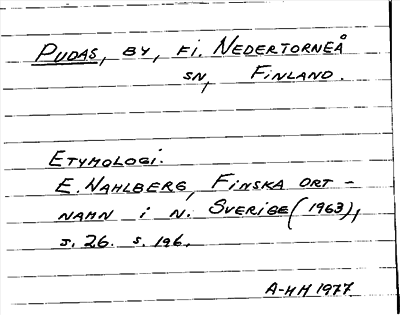 PUDAS, BY, FI. NEDERTORNEÅ
SN, FINLAND.
ETYMOLOGI.
E. WAHLBERG, FINSKA ORT-
NAMN I N. SVERIGE (1963),
s. 26. s. 196.
A-MM 1977.